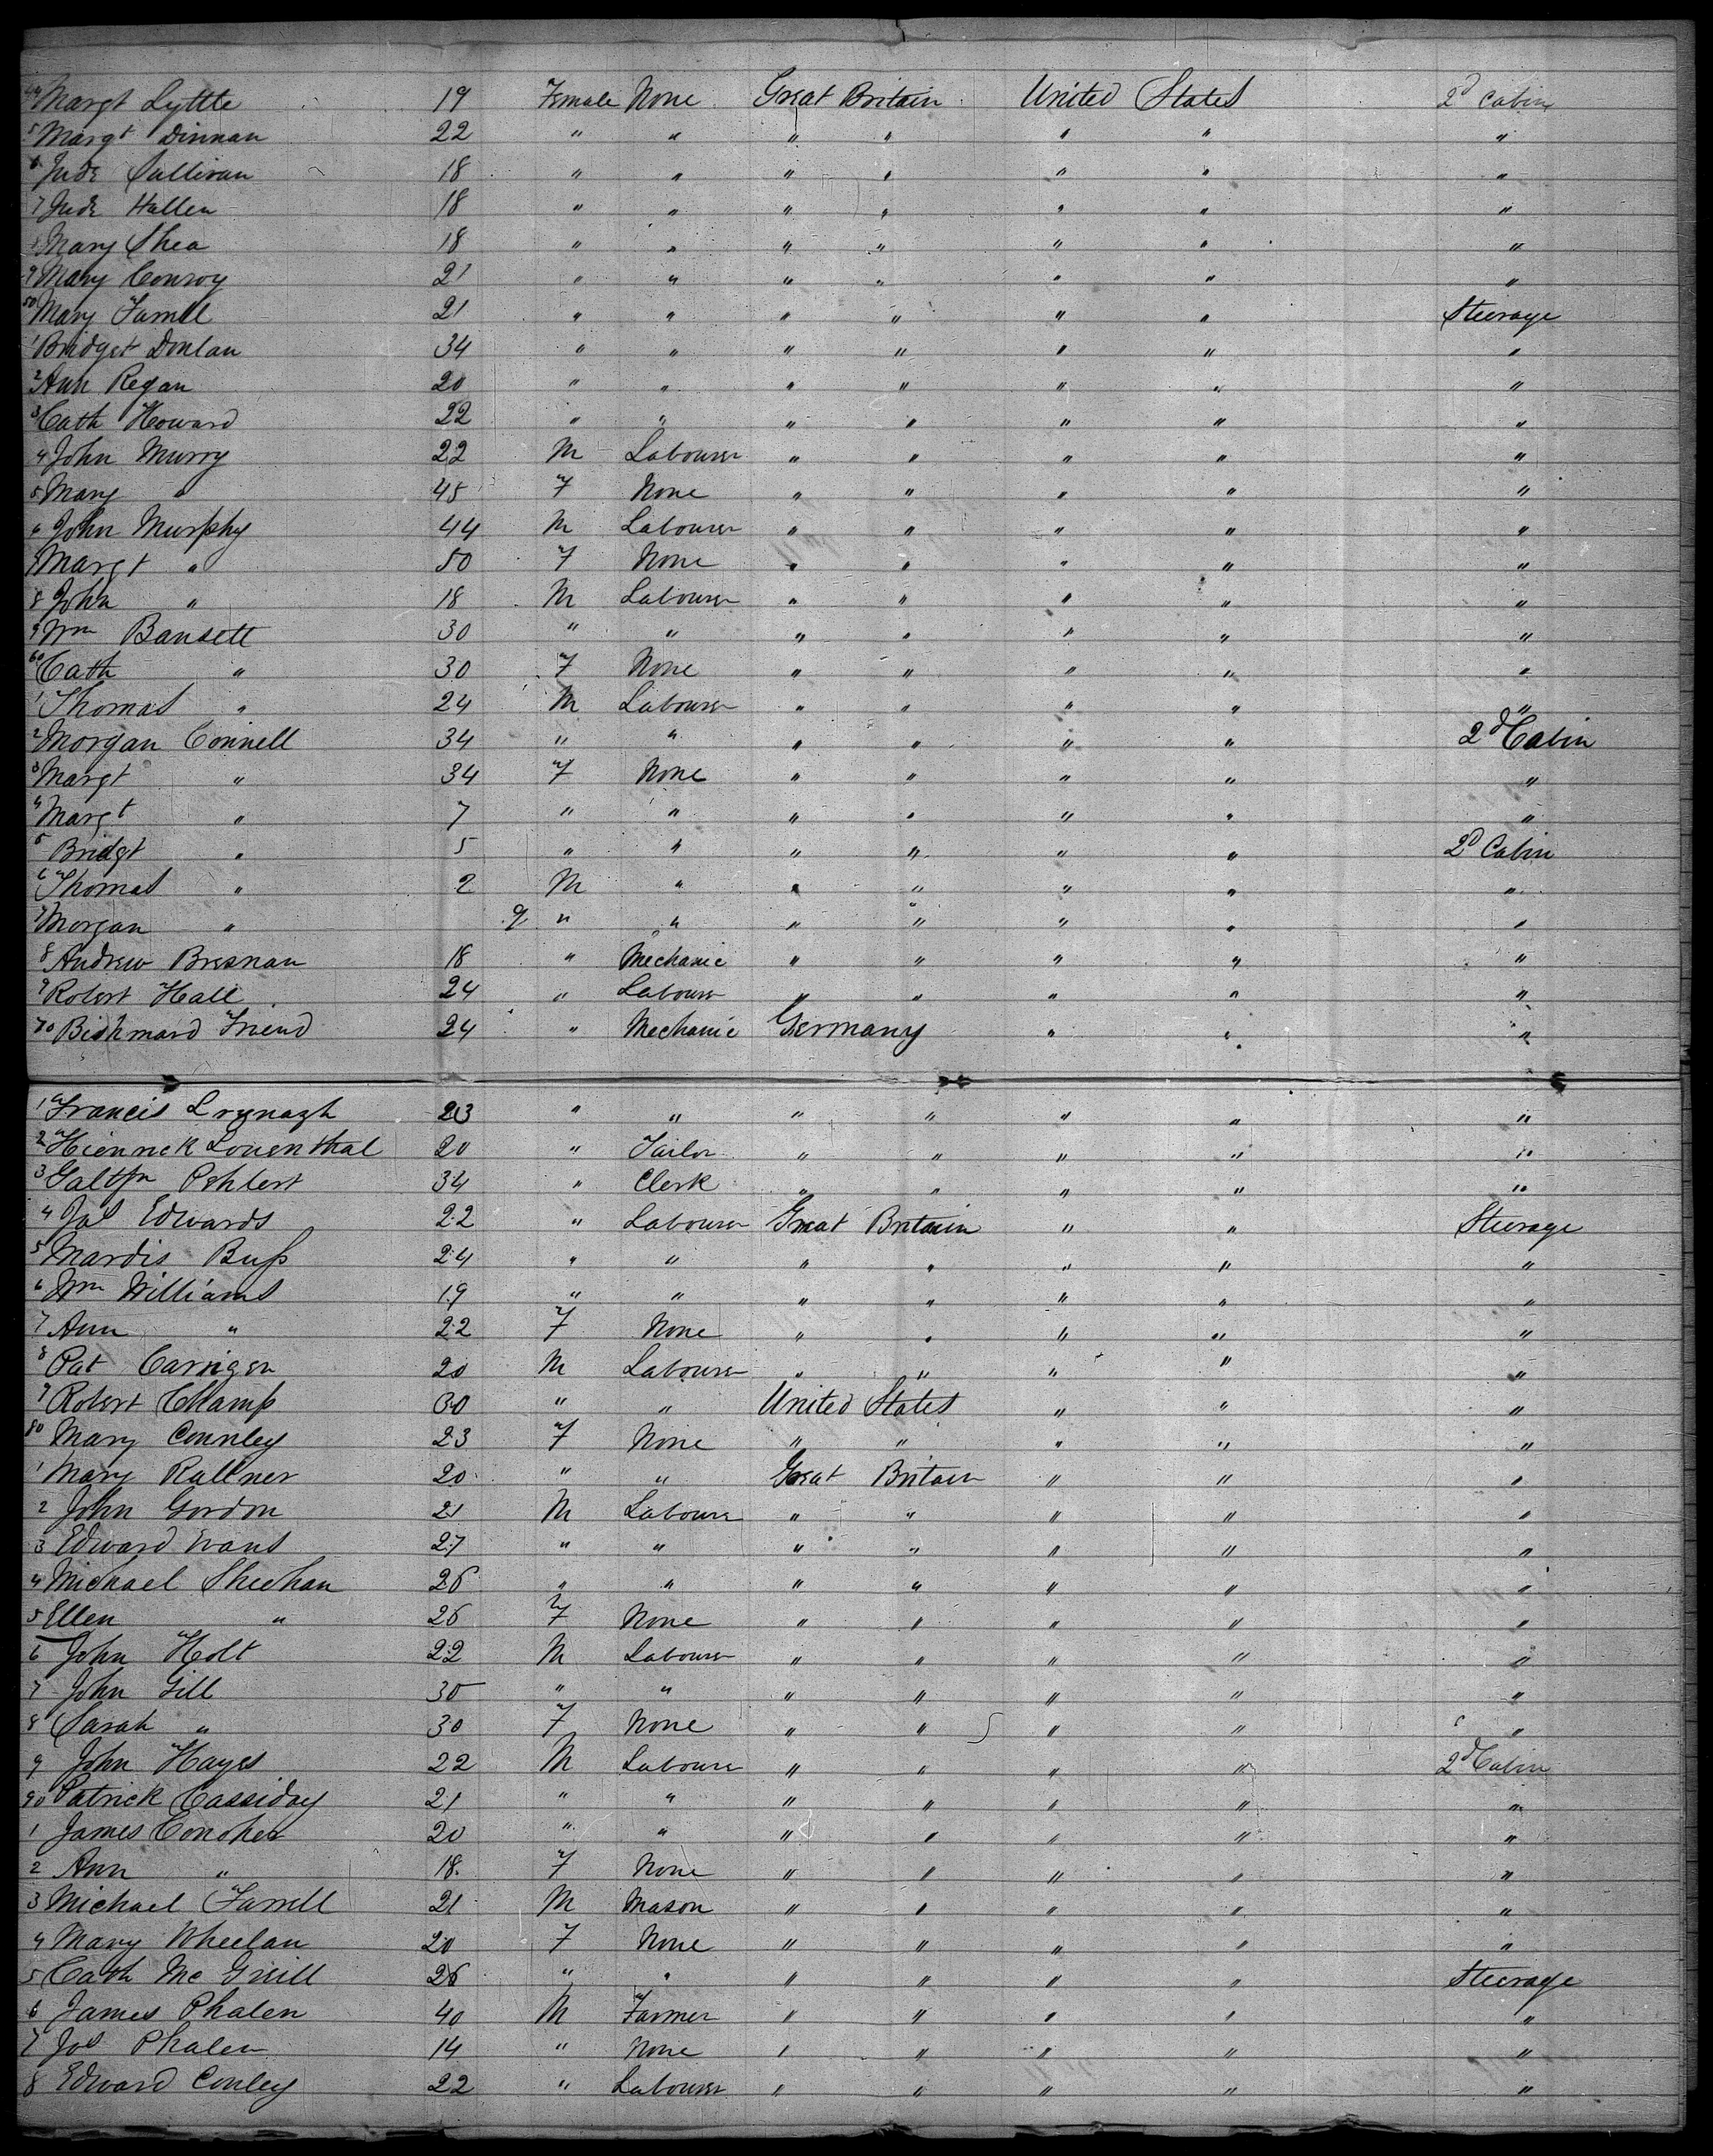 44 Margt Lyttle 19 Female None Great Britain United States 2d Cabin
5 Margt Dinnan 22 " " " " " " "
6 Jude Sullivan 18 " " " " " " "
7 Jude Hallen 18 " " " " " " "
Mary Shea 18 " " " " " " "
9 Mary Conroy 21 " " " " " " "
50 Mary Farrell 21 " " " " " " Steerage
1 Bridget Donlan 34 " " " " " " "
2 Ann Regan 20 " " " " " " "
3 Cath Howard 22 " " " " " " "
4 John Murry 22 M Labourer " " " " "
5 Mary " 45 F None " " " " "
6 John Murphy 44 M Labourer " " " " "
7 Margt " 50 F None " " " " "
8 John " 18 M Labourer " " " " "
9 Wm Bansett 30 " " " " " " "
60 Cath " 30 F None " " " " "
1 Thomas " 24 M Labourer " " " " "
2 Morgan Connell 34 " " " " " " 2d Cabin
3 Margt " 34 F None " " " " "
4 Margt " 7 " " " " " " "
5 Bridgt " 5 " " " " " " 2d Cabin
6 Thomas " 2 M " " " " " "
7 Morgan " 9 " " " " " " "
8 Andrew Bresnan 18 " Mechanic " " " " "
9 Robert Hall 24 " Labourer " " " " "
70 Bishmard Friend 24 " Mechanic Germany " " "
1 Francis 23 " " " " " " "
2 Hienrick Louenthal 20 " Tailor " " " " "
3 34 " Clerk " " " " "
4 Jas Edwards 22 " Labourer Great Britain " " Steerage
5 Mardis Buss 24 " " " " " " "
6 Wm Williams 19 " " " " " " "
7 Ann " 22 F None " " " " "
8 Pat Carrigen 20 M Labourer " " " " "
9 Robert Champ 30 " " United States " " "
80 Mary Connley 23 F None " " " " "
1 Mary Rallner 20 " " Great Britain " " "
2 John Gordon 21 M Labourer " " " " "
3 Edward Evans 27 " " " " " " "
4 Michael Sheehan 26 " " " " " " "
5 Ellen " 26 F None " " " " "
6 John Holt 22 M Labourer " " " " "
7 John Gill 30 " " " " " " "
8 Sarah " 30 F None " " " " "
9 John Hayes 22 M Labourer " " " " 2d Cabin
90 Patrick Cassiday 21 " " " " " " "
1 James Conoher 20 " " " " " " "
2 Ann " 18 F None " " " " "
3 Michael Farrell 21 M Mason " " " " "
4 Mary Wheelan 20 F None " " " " "
5 Cath Mc Grill 26 " " " " " " Steerage
6 James Phalen 40 M Farmer " " " " "
7 Jos Phalen 14 " None " " " " "
8 Edward Conley 22 " Labourer " " " " "